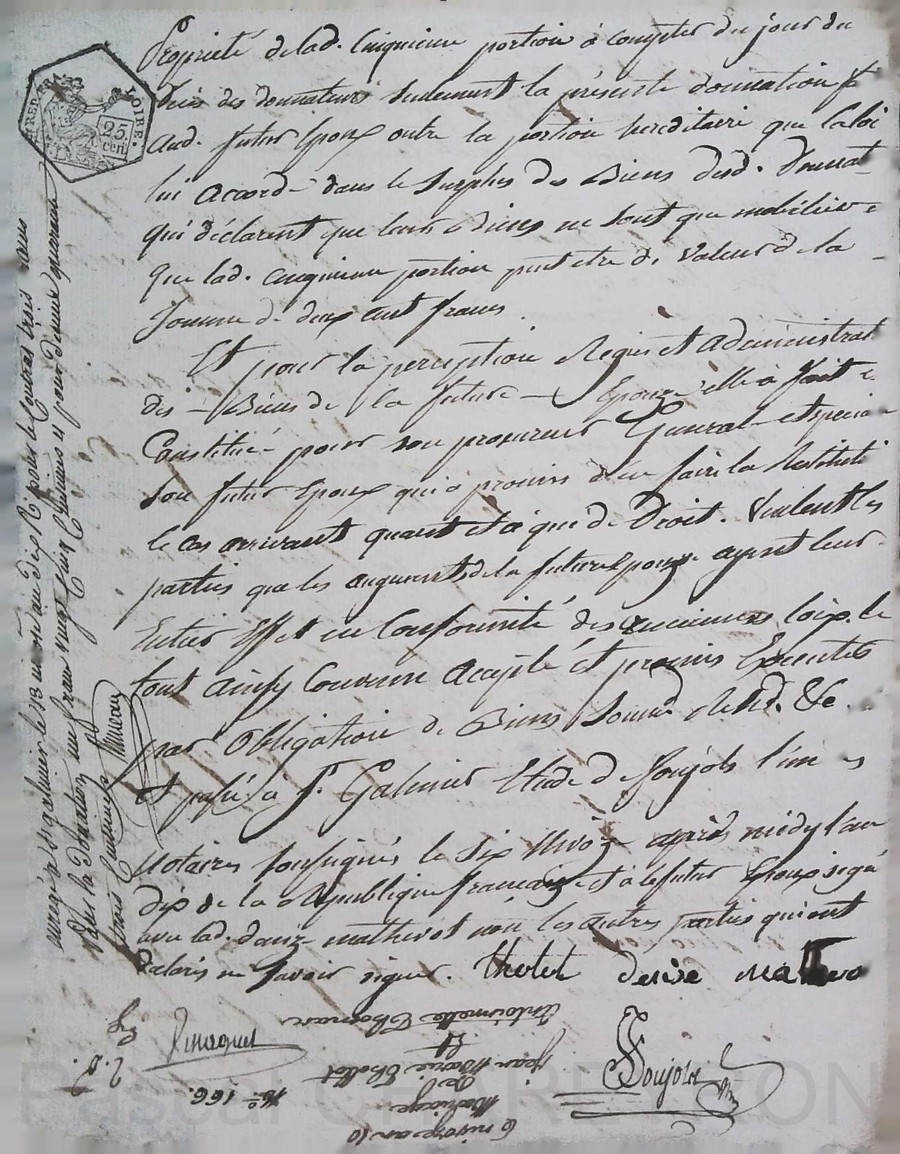 Propriété de lad. Cinquieme portion à compter du jour du
décès des donnateurs seulement la présente donnation f
Aud. futur Epoux outre la portion hereditaire que la loi
lui accorde dans le Surplus des Biens desd. Donnat
qui déclarent que leurs Biens ne sont que mobiliers
que lad. cinquieme portion peut etre de valeur de la
somme de deux cent francs.
Et pour la perception Regie et administrat
des Biens de la future Epouze elle à fait
Constitué pour son procureur General et special
son futur Epoux qui a promis d'en faire la Restituti
le cas arrivant quant et à qui de Droit. Veulent les
parties que les augments de la future Epouze ayent leur
Entier Effet en Conformité des anciennes loix. le
tout ainsy Convenu accepté et promis Executer
par Obligation de Biens Soumis &c.
Et passé à St. Galmier Etude de Soujols l'un
Notaires soussignés le six Nivôse après midy l'an
dix de la Republique française et à le futur Epoux signé
avec lad. mathevot non les autres parties qui ont
déclaré ne savoir signer. tholot
25
cent
LOIRE.
enreg. à St galmier le nivose an dix
Pinaquet
Soujols
6 nivose an 10
Mariage
de
Jean Marie thollot
Et
Antoinette
No. 166.